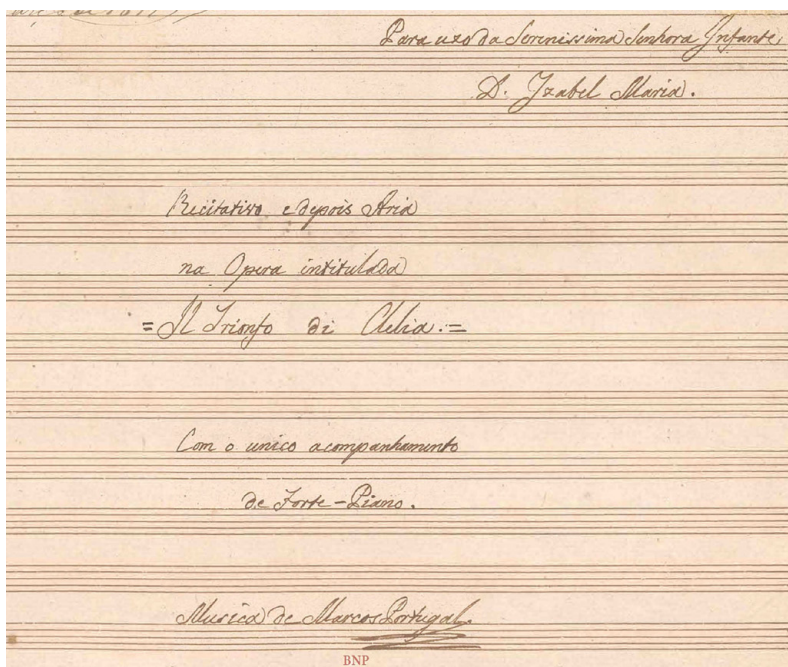 de 1817
Para uzo da Serenissima Senhora Infante,
D. Yzabel Maria.
Recitativo e depois Aria
na Opera intitulada
= Il Trionfo di Clelia. =
Com o unico acompanhamento
de Forte-Piano.
Musica de Marcos Portugal.
BNP